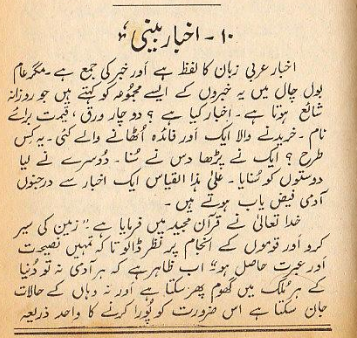 ۱۰ - اخبار بینی
اخبار عربی زبان کا لفظ ہے اور خبر کی جمع ہے۔ مگر عام
بول چال میں یہ خبروں کے ایسے مجموعہ کو کہتے ہیں جو روزانہ
شائع ہوتا ہے۔ اخبار کیا ہے؟ دو چار ورق، قیمت برائے
نام۔ خریدنے والا ایک اور فائدہ اُٹھانے والے کئی۔ یہ کس
طرح؟ ایک نے پڑھا دس نے سُنا۔ دُوسرے نے لیا
دوستوں کو سُنایا۔ علیٰ ہذا القیاس ایک اخبار سے درجنوں
آدمی فیض یاب ہوتے ہیں۔
خدا تعالیٰ نے قرآن مجید میں فرمایا ہے "زمین کی سیر
کرو اور قوموں کے انجام پر نظر ڈالو تاکہ تمہیں نصیحت
اور عبرت حاصل ہو" اب ظاہر ہے کہ ہر آدمی نہ تو دُنیا
کے ہر مُلک میں گھوم پھر سکتا ہے اور نہ وہاں کے حالات
جان سکتا ہے اس ضرورت کو پُورا کرنے کا واحد ذریعہ